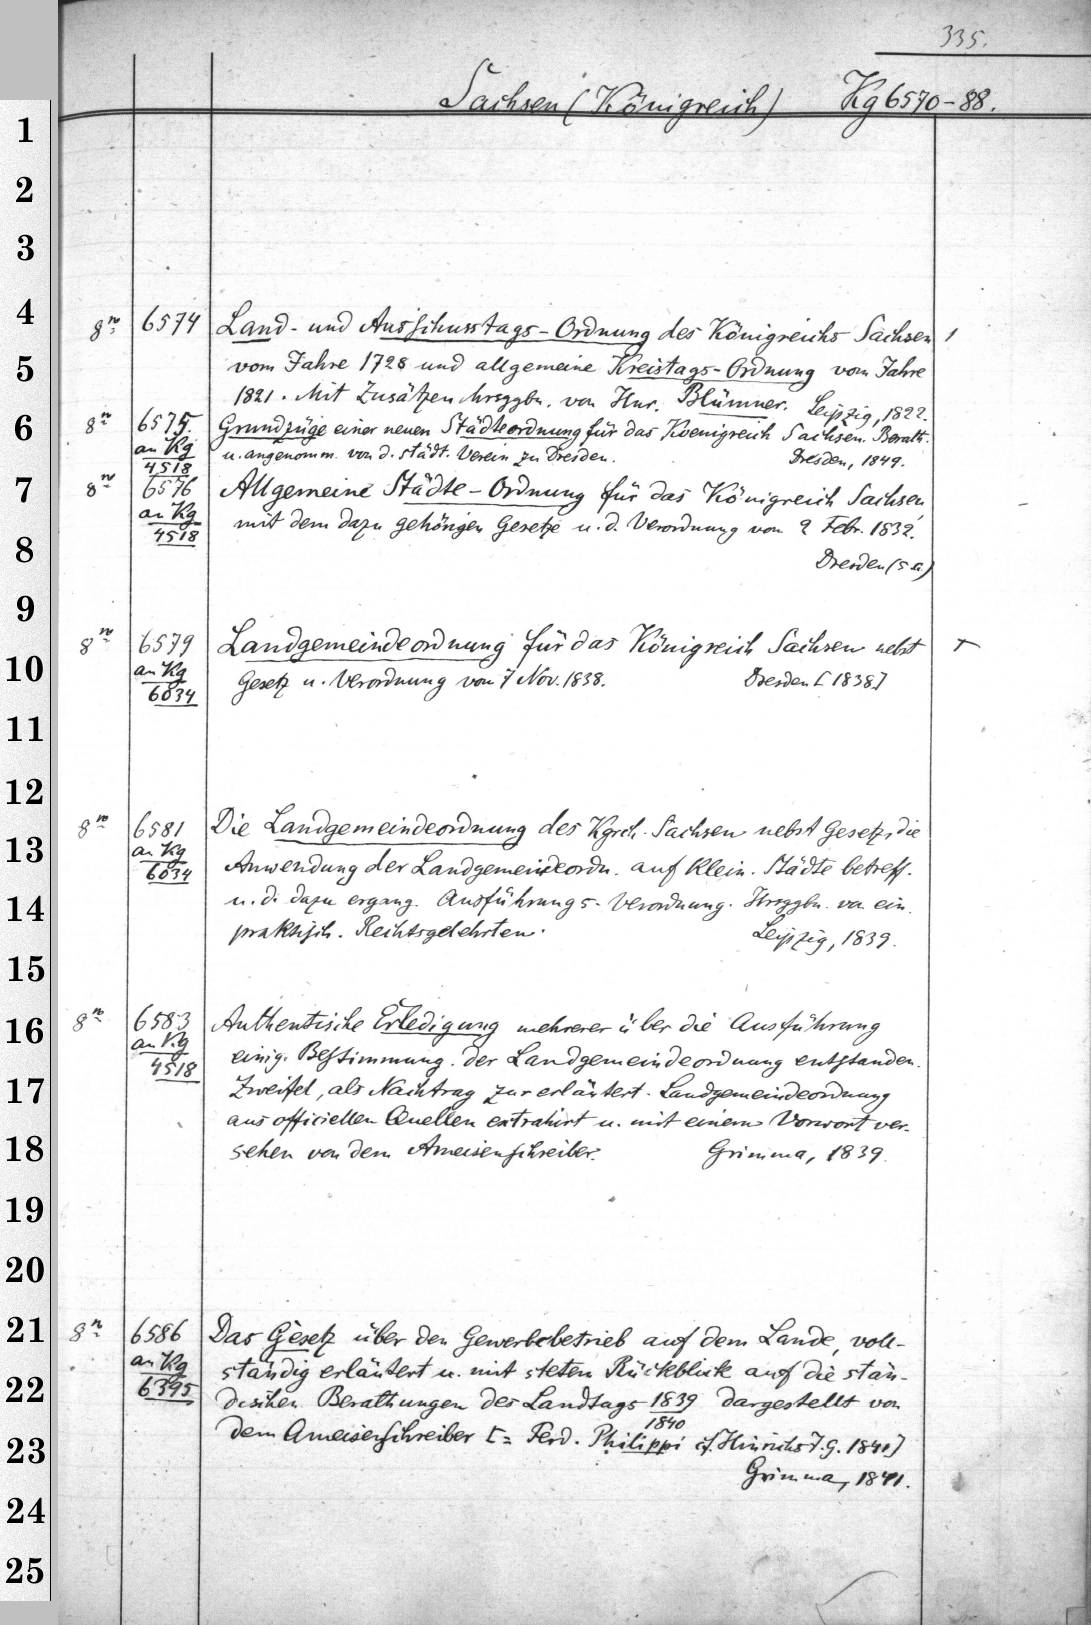 335.
Sachsen (Königreich) Kg 6570-88.
1
2
3
4
5
6
7
8
9
10
11
12
13
14
15
16
17
18
19
20
21
22
23
24
25
8° 6574 Land- und Ausschusstags-Ordnung des Königreichs Sachsen
vom Jahre 1728 und allgemeine Kreistags-Ordnung vom Jahre
1821. Mit Zusätzen hrsggbn. von Hnr. Blümner. Leipzig, 1822.
8° 6575. Grundzüge einer neuen Städteordnung für das Koenigreich Sachsen. Berath.
an Kg 4518 u. angenomm. von d. städt. Verein zu Dresden. Dresden, 1849.
8° 6576 Allgemeine Städte-Ordnung für das Königreich Sachsen
an Kg 4518 mit dem dazu gehörigen Gesetze u. d. Verordnung von 2 Febr. 1832.
Dresden (s a)
8° 6579 Landgemeindeordnung für das Königreich Sachsen nebst
an Kg 6034 Gesetz u. Verordnung vom 7 Nov. 1838. Dresden [1838]
8° 6581 Die Landgemeindeordnung des Kgrch. Sachsen nebst Gesetz, die
an Kg 6034 Anwendung der Landgemeindeordn. auf klein. Städte betreff.
u. d. dazu ergang. Ausführungs-Verordnung. Hrsggbn. von ein.
praktisch. Rechtsgelehrten. Leipzig, 1839.
8° 6583 Authentische Erledigung mehrerer über die Ausführung
an Kg 4518 einig. Bestimmung. der Landgemeindeordnung entstanden.
Zweifel, als Nachtrag zur erläutert. Landgemeindeordnung
aus officiellen Quellen extrahirt u. mit einem Vorwort ver-
sehen von dem Ameisenschreiber. Grimma, 1839.
8° 6586 Das Gesetz über den Gewerbebetrieb auf dem Lande, voll-
an Kg 6395 ständig erläutert u. mit steten Rückblick auf die stän-
dischen Berathungen des Landtags 1839/1840 dargestellt von
dem Ameisenschreiber [= Ferd. Philippi cf. Hinrichs J. G. 1841]
Grimma, 1841.